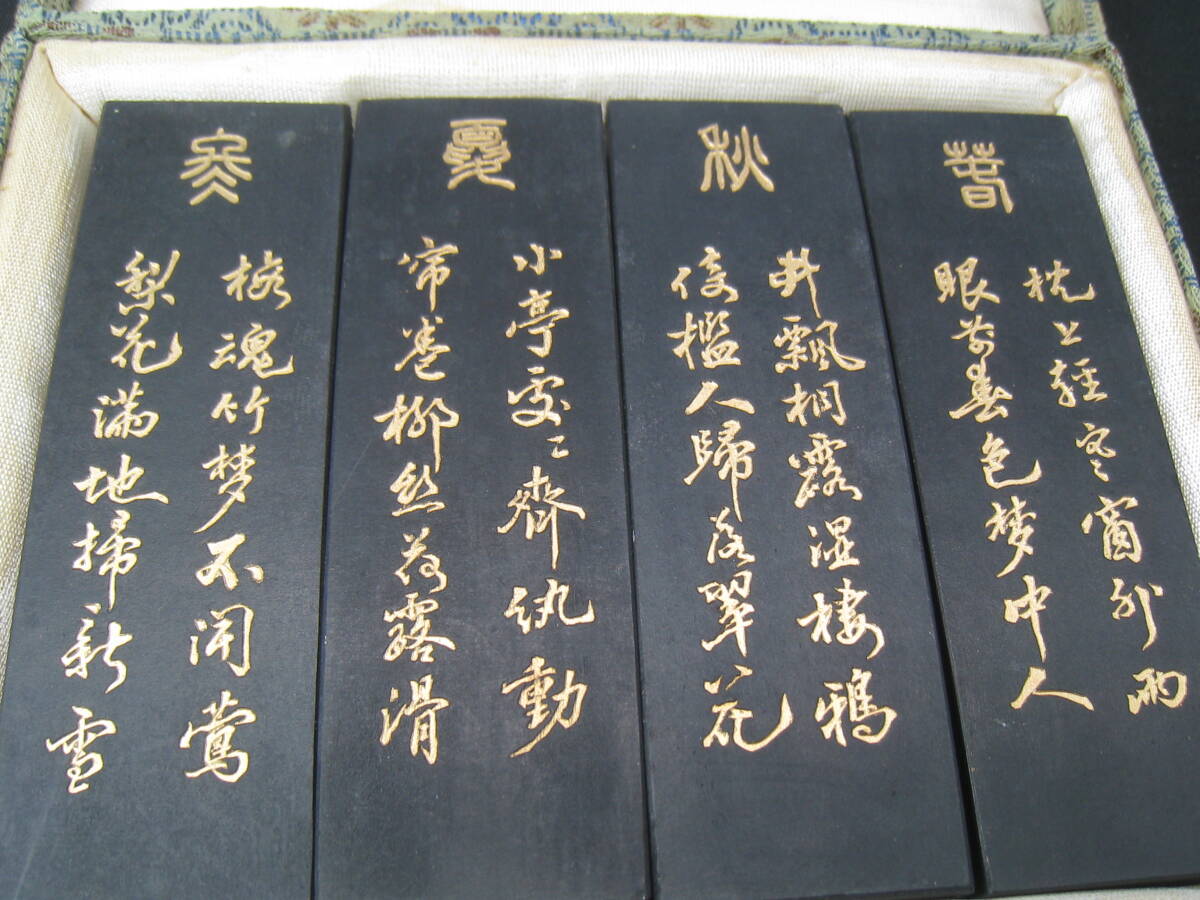 春
枕上輕寒窗外雨
眼前春色梦中人
秋
井飄桐露湿棲鴉
倚檻人歸落翠花
夏
小亭處々齊紈動
帘卷柳丝荷露滑
冬
梅魂竹梦不闻莺
梨花满地掃新雪